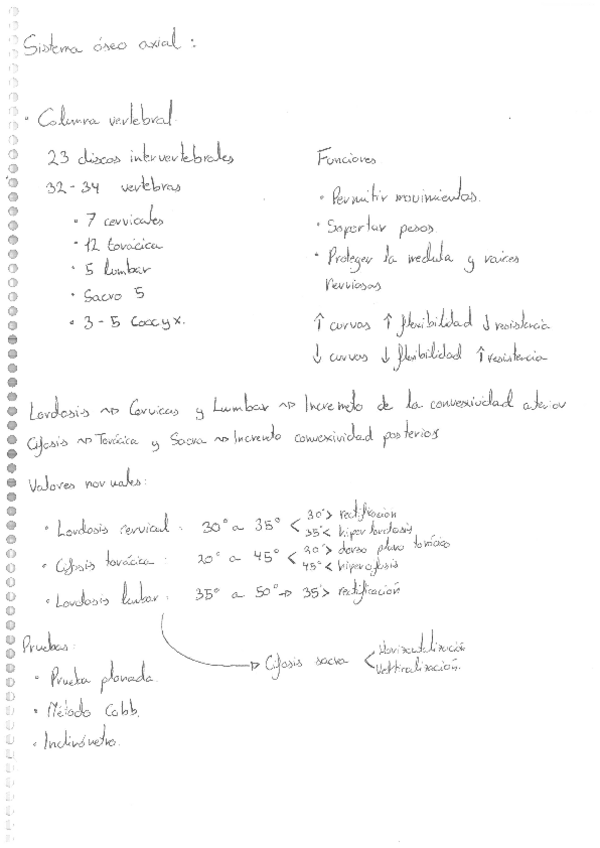 Sistema óseo axial :
• Columna vertebral
23 discos intervertebrales
32 - 34 vertebras
• 7 cervicales
• 12 torácica
• 5 lumbar
• Sacro 5
• 3 - 5 Coccyx.
Funciones
• Permitir movimientos.
• Soportar pesos.
• Proteger la medula y raices
nerviosas
↑ curvas ↑ flexibilidad ↓ resistencia
↓ curvas ↓ flexibilidad ↑ resistencia
Lordosis ⇝ Cervicas y Lumbar ⇝ Incremeto de la convexividad aterior
Cifosis ⇝ Torácica y Sacra ⇝ Incremto convexividad posterior
Valores normales:
• Lordosis cervical : 30° a 35° < 30°> rectificación
35°< hiperlordosis
• Cifosis torácica : 20° a 45° < 20°> dorso plano torácico
45°< hipercifosis
• Lordosis lumbar : 35° a 50° → 35°> rectificación
→ Cifosis sacra < Horizontalización
Verticalización.
Pruebas:
• Prueba plomada.
• Método Cobb.
• Inclinómetro.